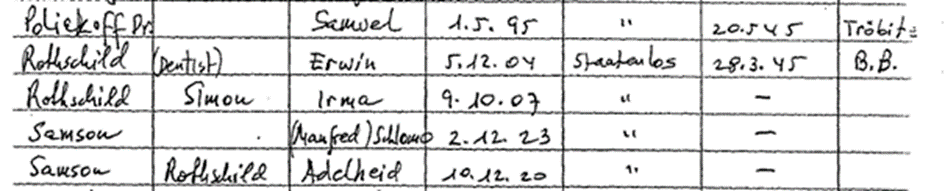 Polickoff Dr. Samuel 1.5.95 " 20.5 45 Tröbitz
Rothschild (Dentist) Erwin 5.12.04 Staatenlos 28.3.45 B.B.
Rothschild Simon Irma 9.10.07 " –
Samson (Manfred) Schlomo 2.12.23 " –
Samson Rothschild Adelheid 10.12.20 " –